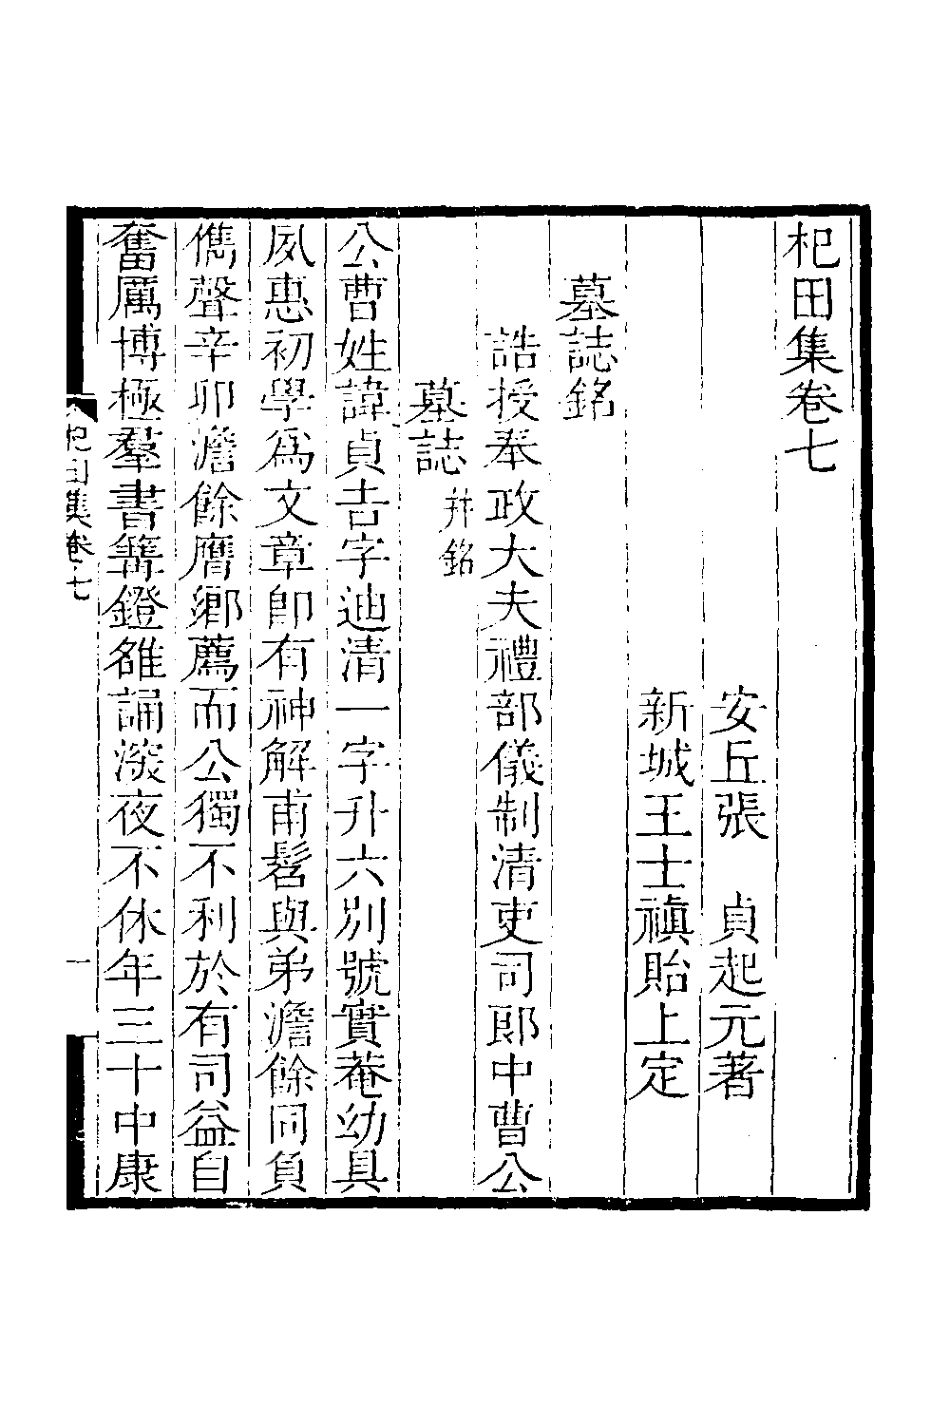 杞田集卷七
安丘張　貞起元著
新城王士禛貽上定
墓誌銘
誥授奉政大夫禮部儀制清吏司郎中曹公
墓誌并銘
公曹姓諱貞吉字迪清一字升六別號實菴幼具
夙惠初學爲文章卽有神解甫髫與弟澹餘同負
儁聲辛卯澹餘膺鄉薦而公獨不利於有司益自
奮厲博極羣書篝鐙雒誦深夜不休年三十中康
杞田集卷七
一